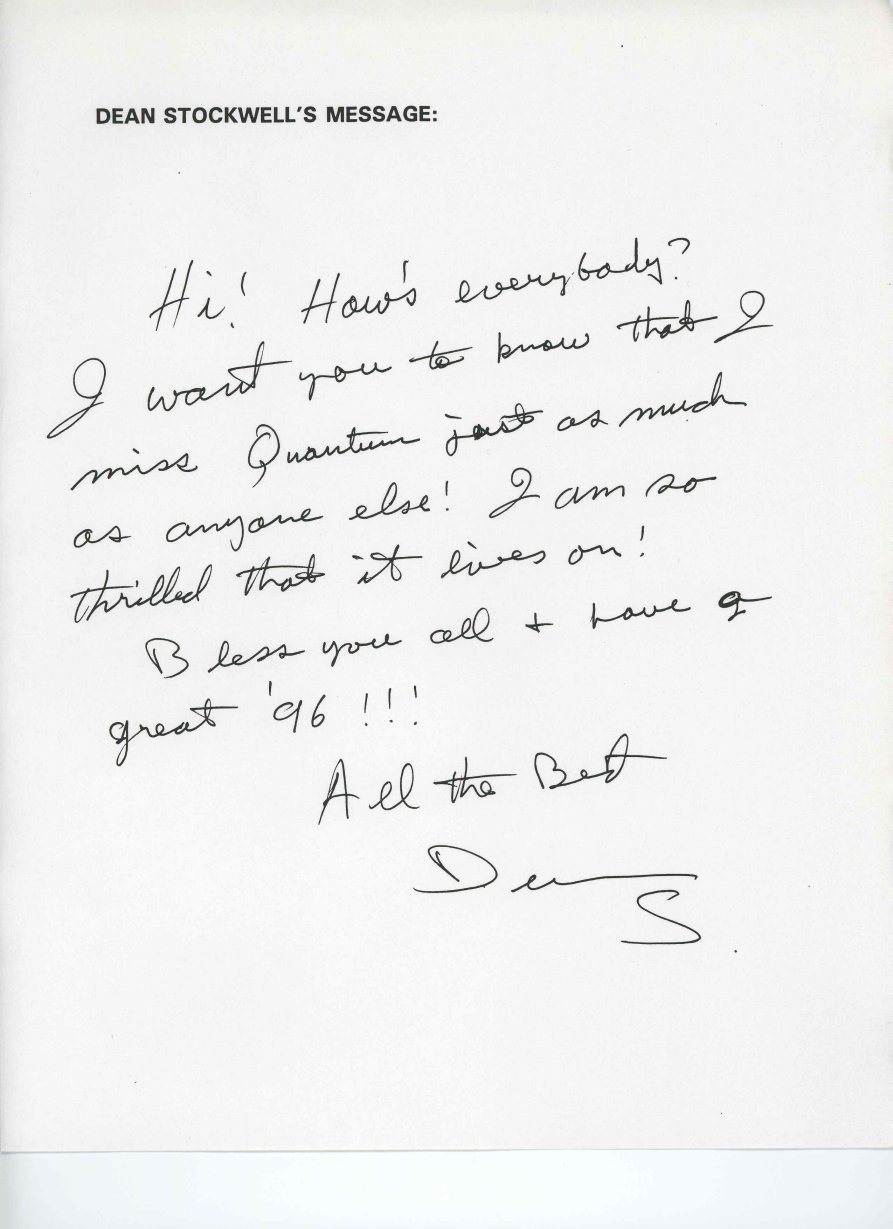 DEAN STOCKWELL'S MESSAGE:
Hi! How's everybody?
I want you to know that I
miss Quantum just as much
as anyone else! I am so
thrilled that it lives on!
Bless you all + have a
great '96 !!!
All the Best
Dean
S